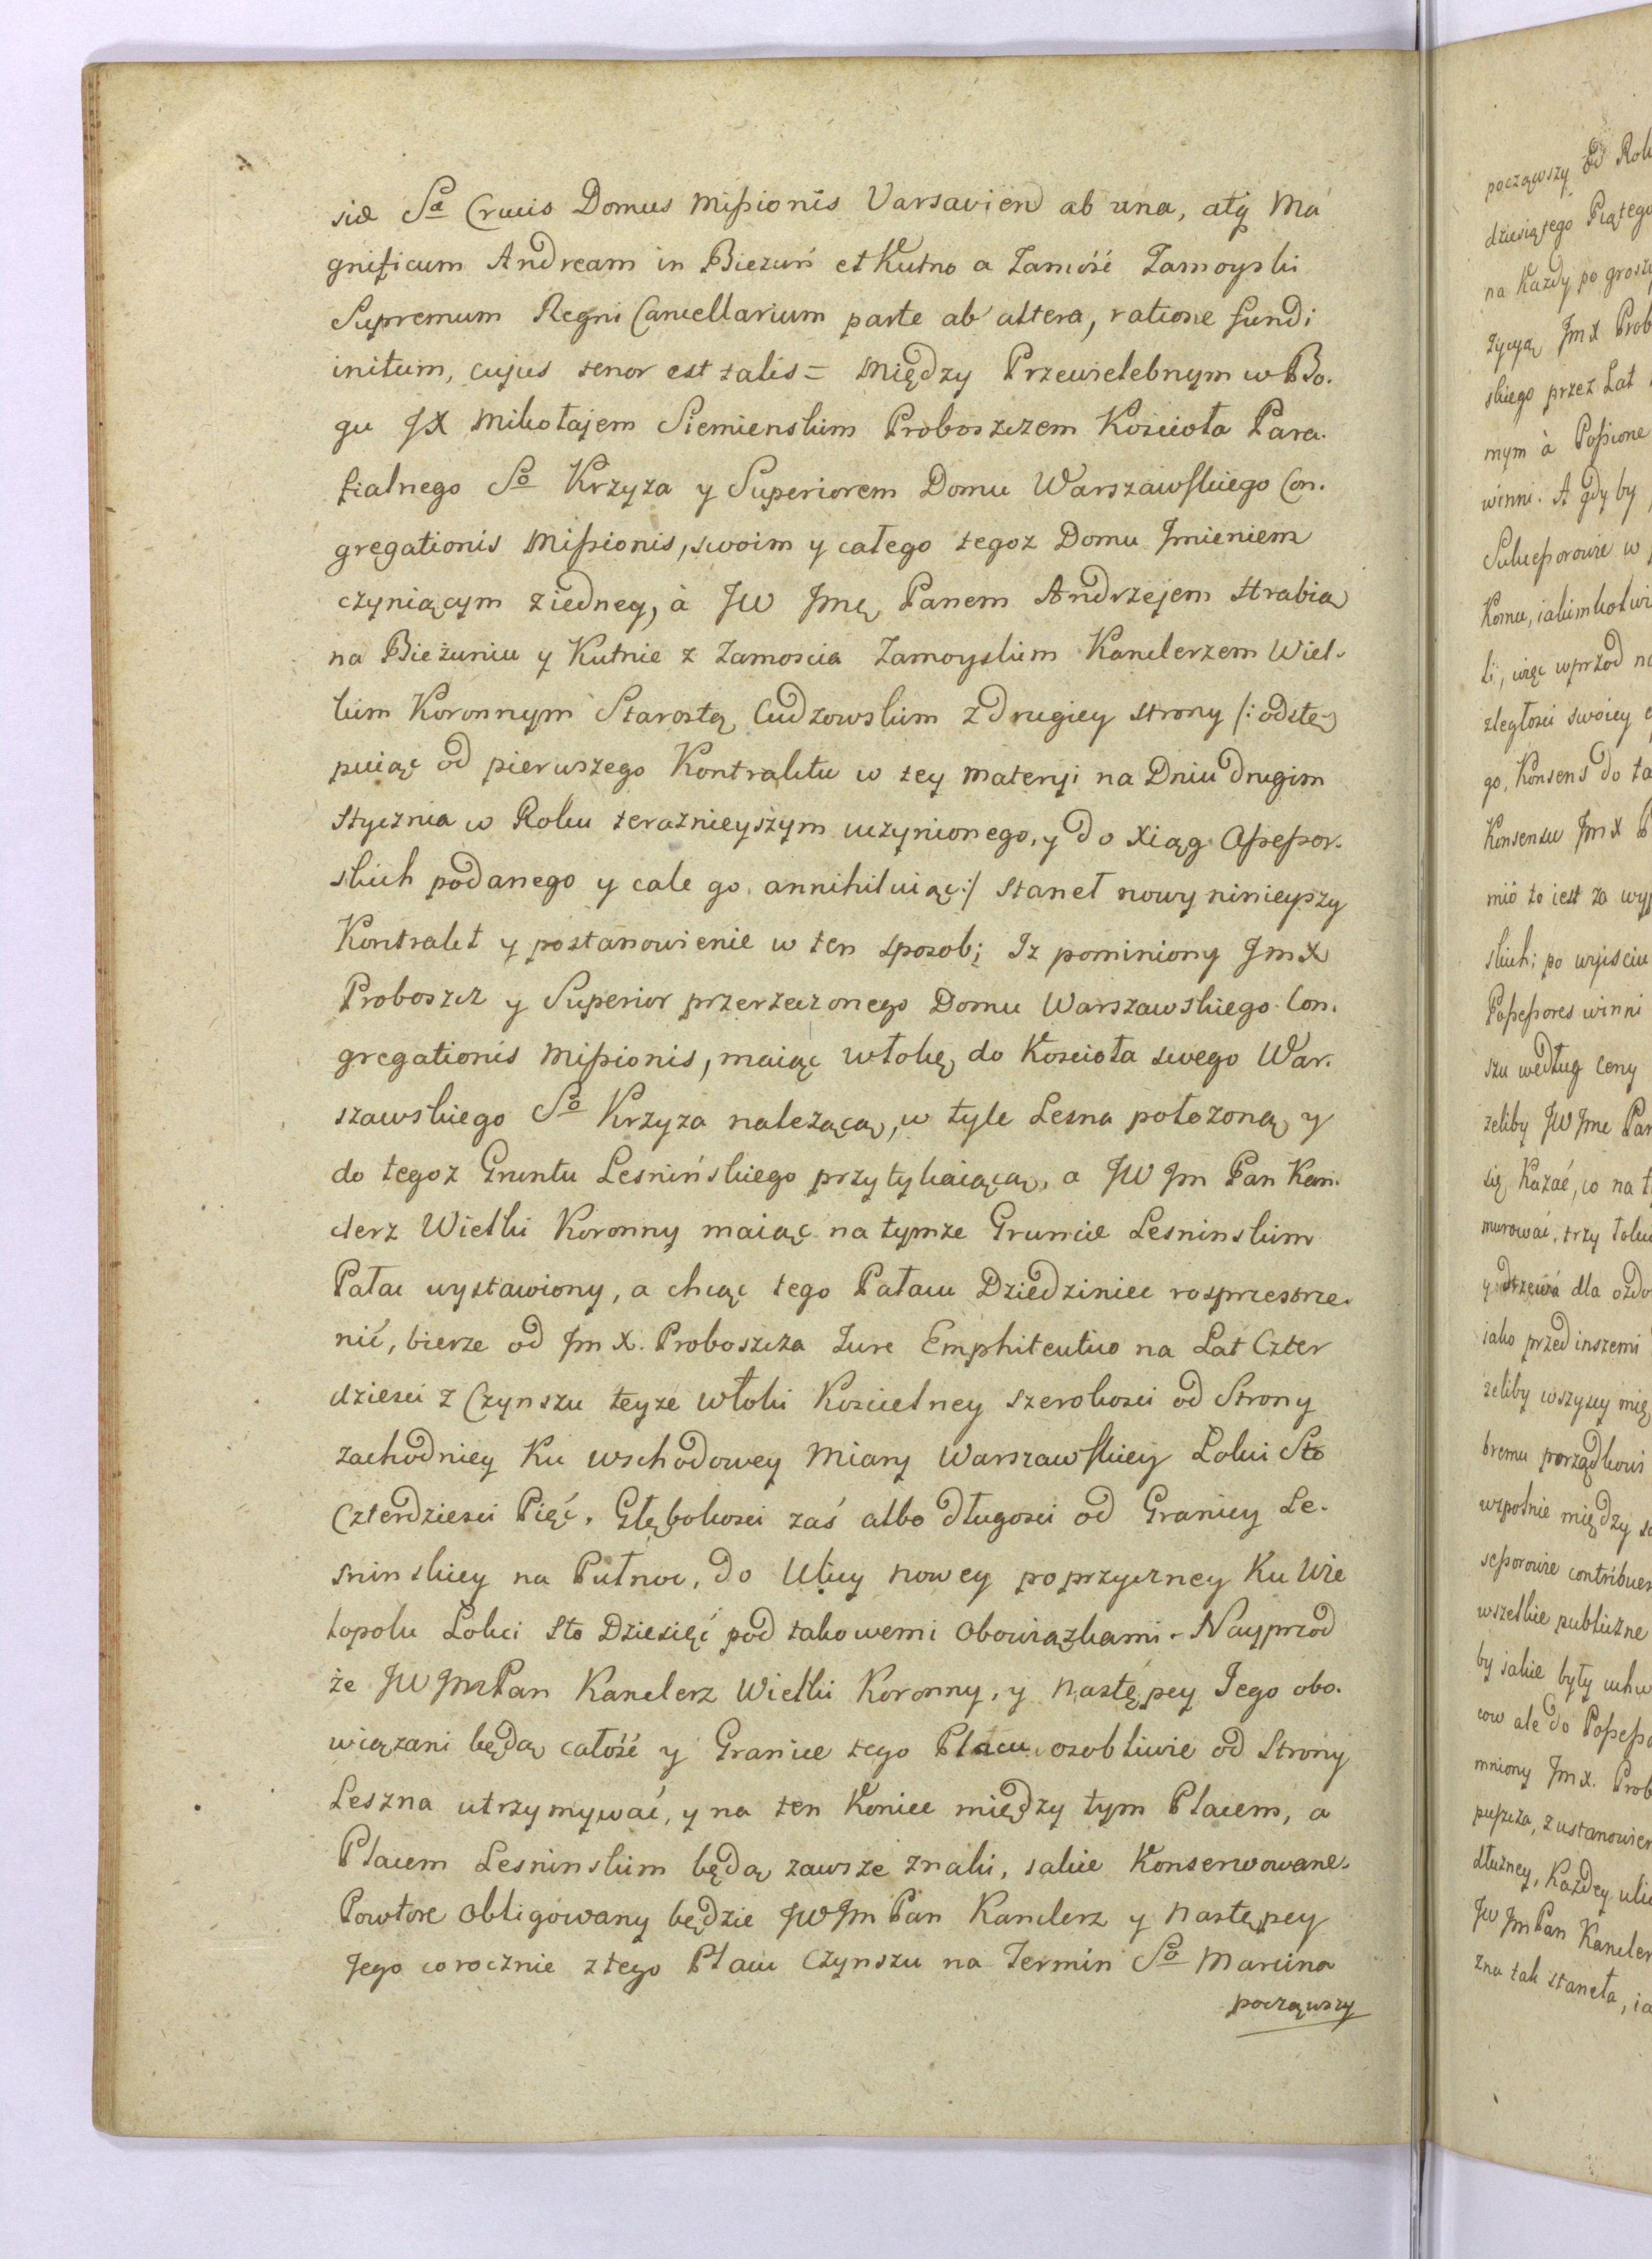 siæ Sæ Crucis Domus Missionis Varsavien ab una, atq Ma
gnificum Andream in Biezuń et Kutno a Zamość Zamoyski
Supremum Regni Cancellarium parte ab altera, ratione fundi
initum, cujus tenor est talis = Między Przewielebnym w Bo.
gu JX Mikołajem Siemienskim Proboszczem Kościoła Para.
fialnego So Krzyza y Superiorem Domu Warszawskiego Con.
gregationis Missionis, swoim y całego tegoz Domu Jmieniem
czyniącym z iedney, à JW Jmę Panem Andrzejem Hrabią
na Bieżuniu y Kutnie z Zamoscia Zamoyskim Kanclerzem Wiel-
kim Koronnym Starostą Ludzowskim z drugiey strony /: odstę-
puiąc od pierwszego Kontraktu w tey materyi na Dniu drugim
Stycznia w Roku teraznieyszym uczynionego, y do Xiąg Assessor.
skich podanego y cale go annihiluiąc :/ Staneł nowy ninieyszy
Kontrakt y postanowienie w ten sposob; Iz pominiony Jmx
Proboszcz y Superior przerzeczonego Domu Warszawskiego Con.
gregationis Missionis, maiąc włokę do Kościoła swego War.
szawskiego So Krzyza nalezącą, w tyle Lesna położoną y
do tegoz Gruntu Lesnińskiego przytykaiącą, a JW Jm Pan Kan.
clerz Wielki Koronny maiąc na tymze Gruncie Lesninskim
Pałac wystawiony, a chcąc tego Pałacu Dziedziniec rosprzestrze.
nić, bierze od Jm X. Proboszcza Jure Emphiteutico na Lat Czter
dziesci z Czynszu teyze włoki Koscielney szerokosci od Strony
zachodniey Ku wschodowey Miary Warszawskiey Lokci Sto
Czterdziesci Pięć, Głębokosci zaś albo długosci od Granicy Le-
sninskiey na Pułnoc, do Ulicy nowey poprzyczney Ku Wie
lopolu Lokci Sto Dziesięć pod takowemi Obowiązkami - Nayprzod
że JW Jm Pan Kanclerz Wielki Koronny, y Następcy Jego obo.
wiązani będą całość y Granice tego Placu osobliwie od Strony
Leszna utrzymywać, y na ten Koniec między tym Placem, a
Placem Lesninskim będą zawsze znaki, takie Konserwowane.
Powtore Obligowany będzie JW Jm Pan Kanclerz y Następcy
Jego corocznie z tego Placu Czynszu na Termin So Marcina
począwszy
począwszy Od Rok
dziesiątego Piątego
na Kazdy po grosz
Jmx Prob
skiego przez Lat
mym à Possione
winni. A gdy by
Sukcessorowie w
Komu, iakimkolwi
li, więc wprzod na
zległosci swoiey
go, Konsens do ta
Konsensu Jmx P
mió to iest za wy
skich; po wyisciu
Possessores winni
szu według Ceny
zeliby JW Jme Pan
się Kazać, co na t
murować, trzy łok
y drzewa dla ozdo
iako przed inszemi
zeliby wszyscy mię
bremu porządkowi
wspolnie między s
sessorowie contribue
wszelkie publiczne
by iakie były uchw
cow ale do Possesso
mniony Jmx. Prob
puszcza, z ustanowien
dłużney, Kazdey ulic
JW Jm Pan Kancler
zna tak staneła, ia